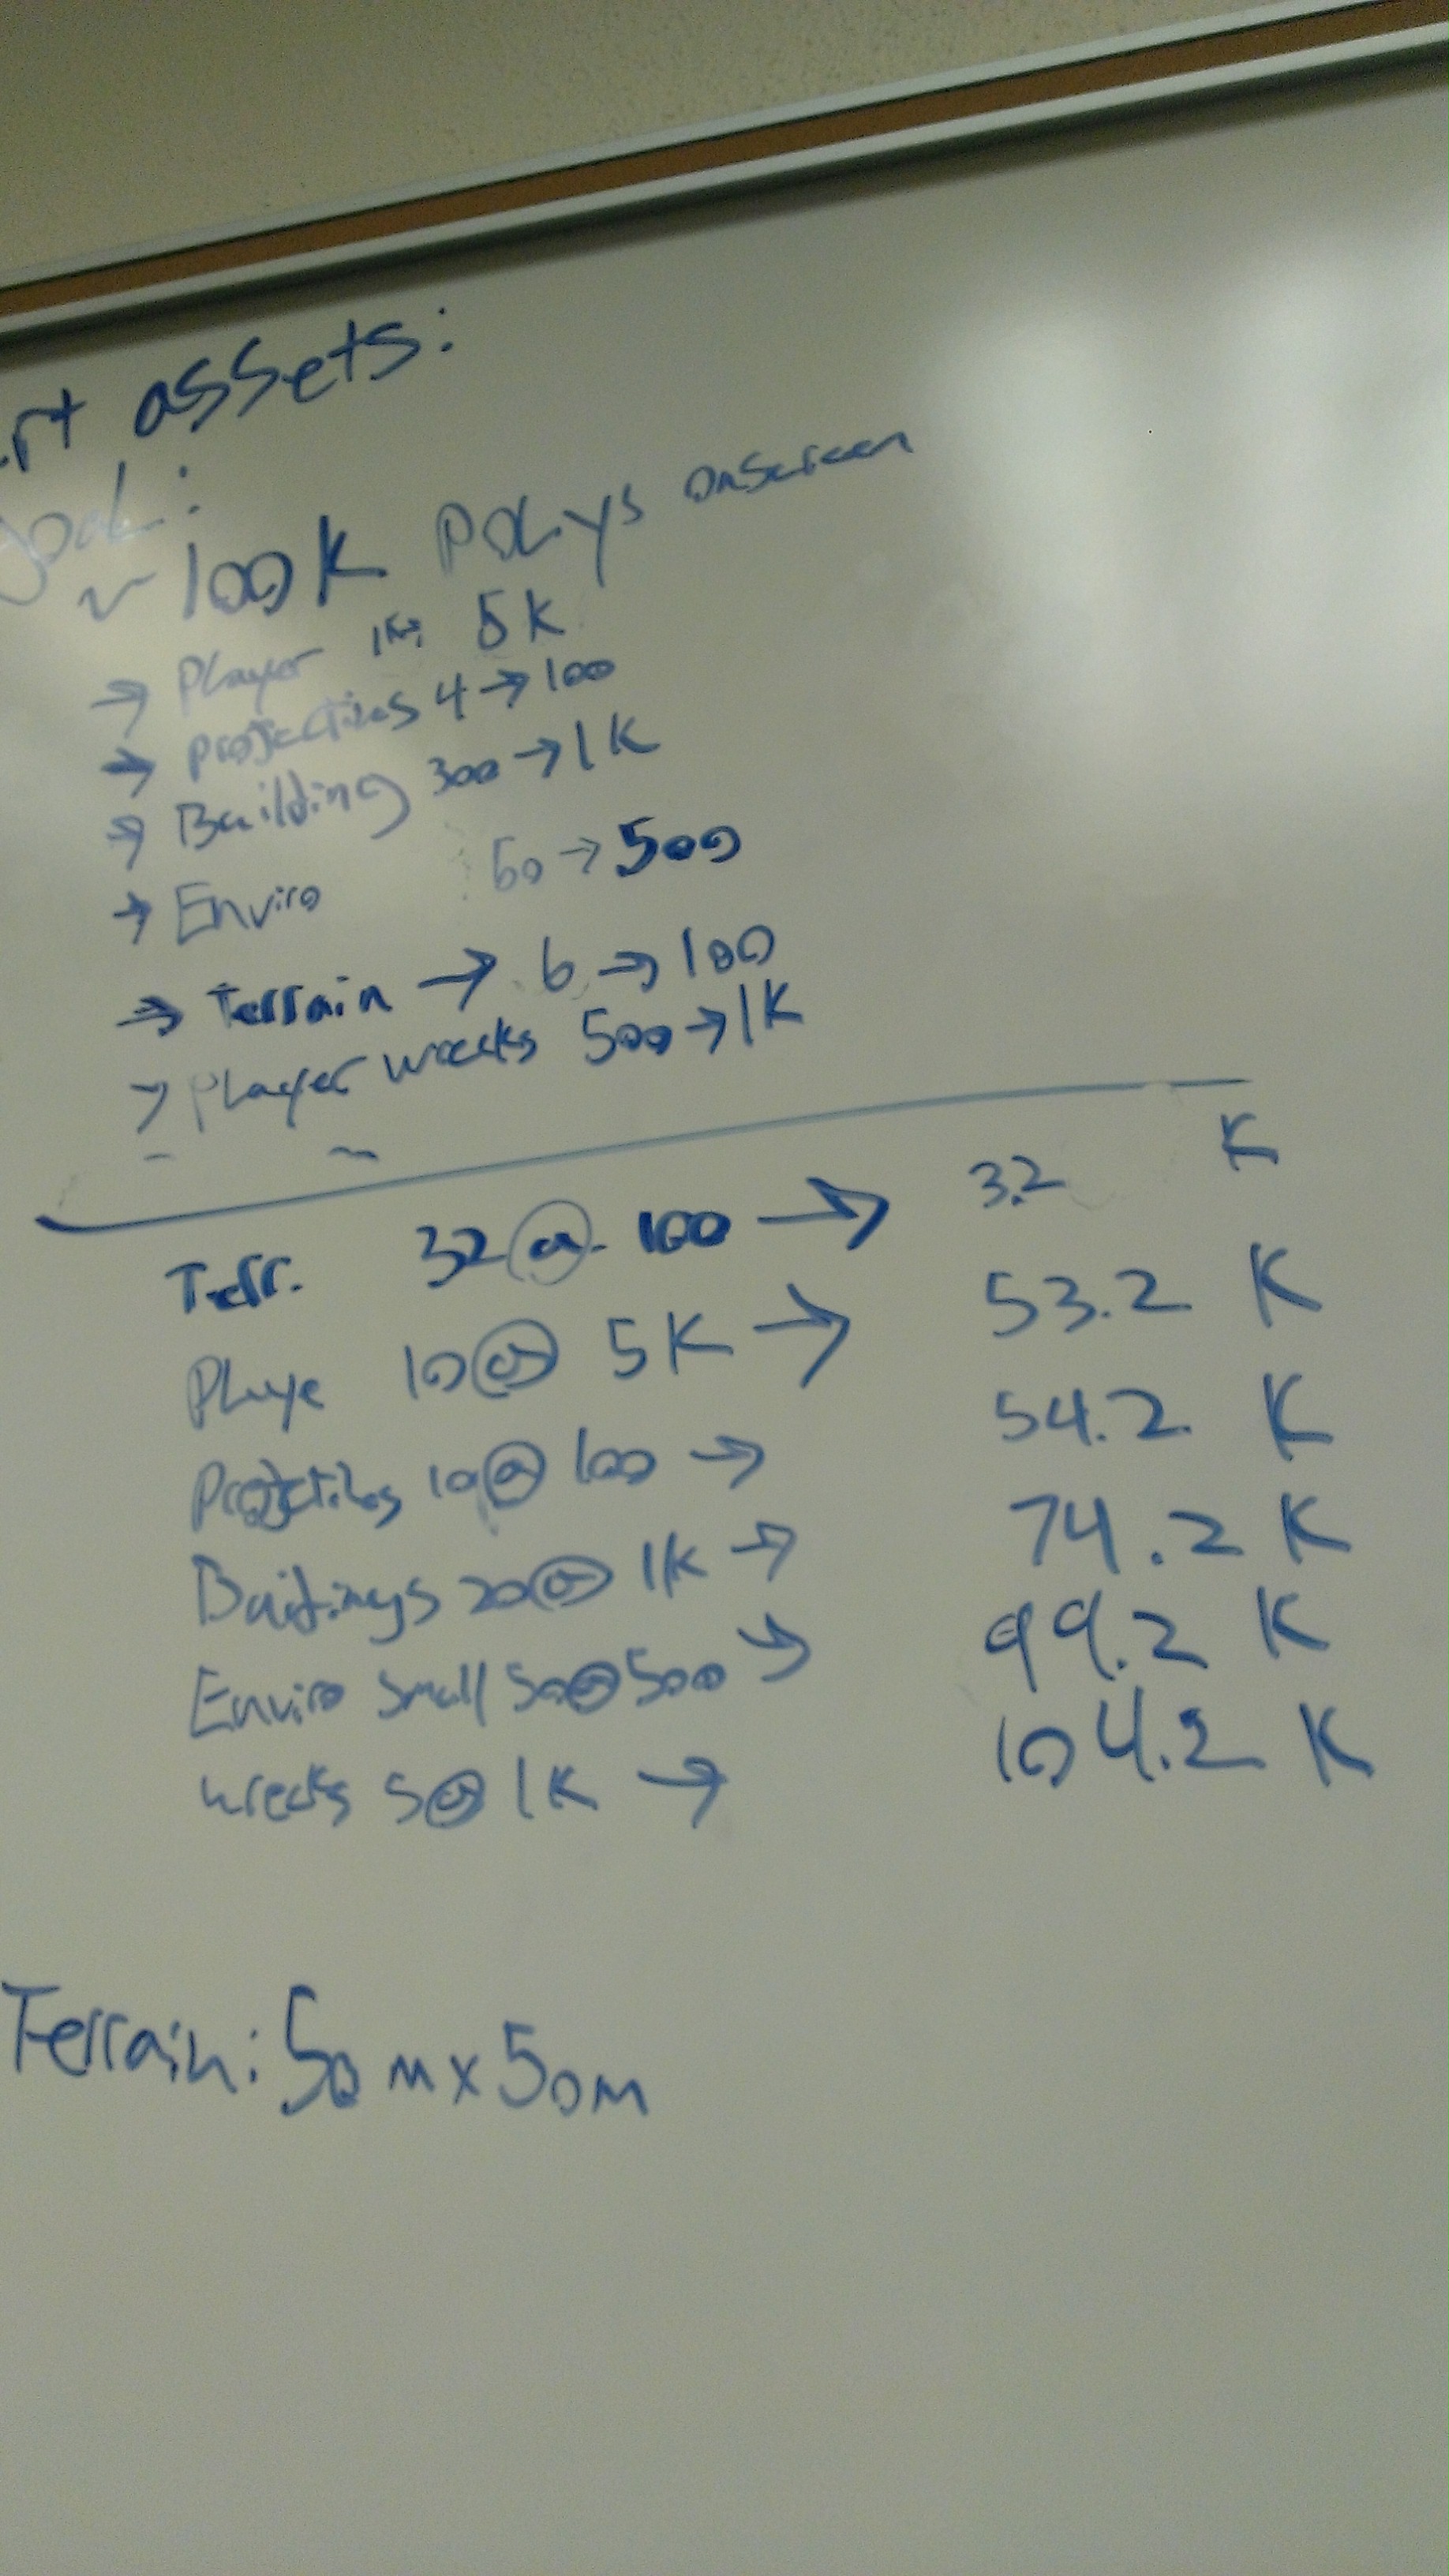 rt assets:
Goal:
~ 100K Polys onscreen
→ Player 1K→ 5K
→ Projectiles 4→100
→ Building 300→1K
→ Enviro 50→500
→ Terrain → 6→100
→ Player wrecks 500→1K
Terr. 32@ 100 → 3.2 K
Playe 10@ 5K → 53.2 K
Projectiles 10@100 → 54.2 K
Buildings 20@ 1K → 74.2 K
Enviro small 50@500 → 99.2 K
wrecks 5@ 1K → 104.2 K
Terrain: 50m x 50m